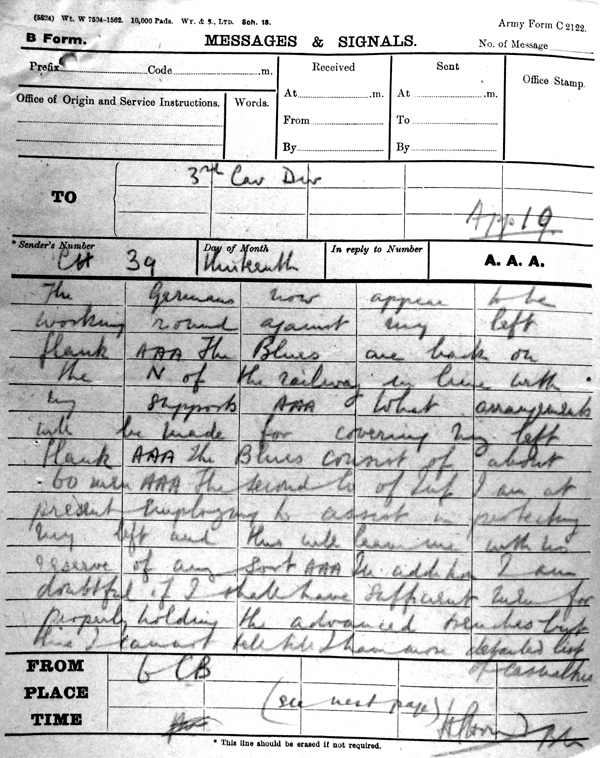 (5824) Wt. W 7504—1562. 10,000 Pads. Wy. & S., Ltd. Sch. 13.
Army Form C 2122.
B Form.
MESSAGES & SIGNALS.
No. of Message
Prefix Code m.
Received
Sent
Office Stamp.
At m.
At m.
Office of Origin and Service Instructions.
Words.
From
To
By
By
TO
3rd Cav Div
App 19.
* Sender's Number
Day of Month
In reply to Number
A. A. A.
39
thirteenth
The Germans now appear to be
working round against my left
flank AAA The Blues are back on
the N of the railway in line with
my supports AAA What arrangements
will be made for covering my left
flank AAA The Blues consist of about
60 men AAA The second of I am at
present employing to assist in protecting
my left and this will leave me with no
reserve of any sort AAA In addition I am
doubtful if I shall have sufficient men for
properly holding the advanced trenches but
this I cannot tell till I have more detailed list
of casualties
FROM
PLACE
TIME
6 CB
(see next page)
* This line should be erased if not required.